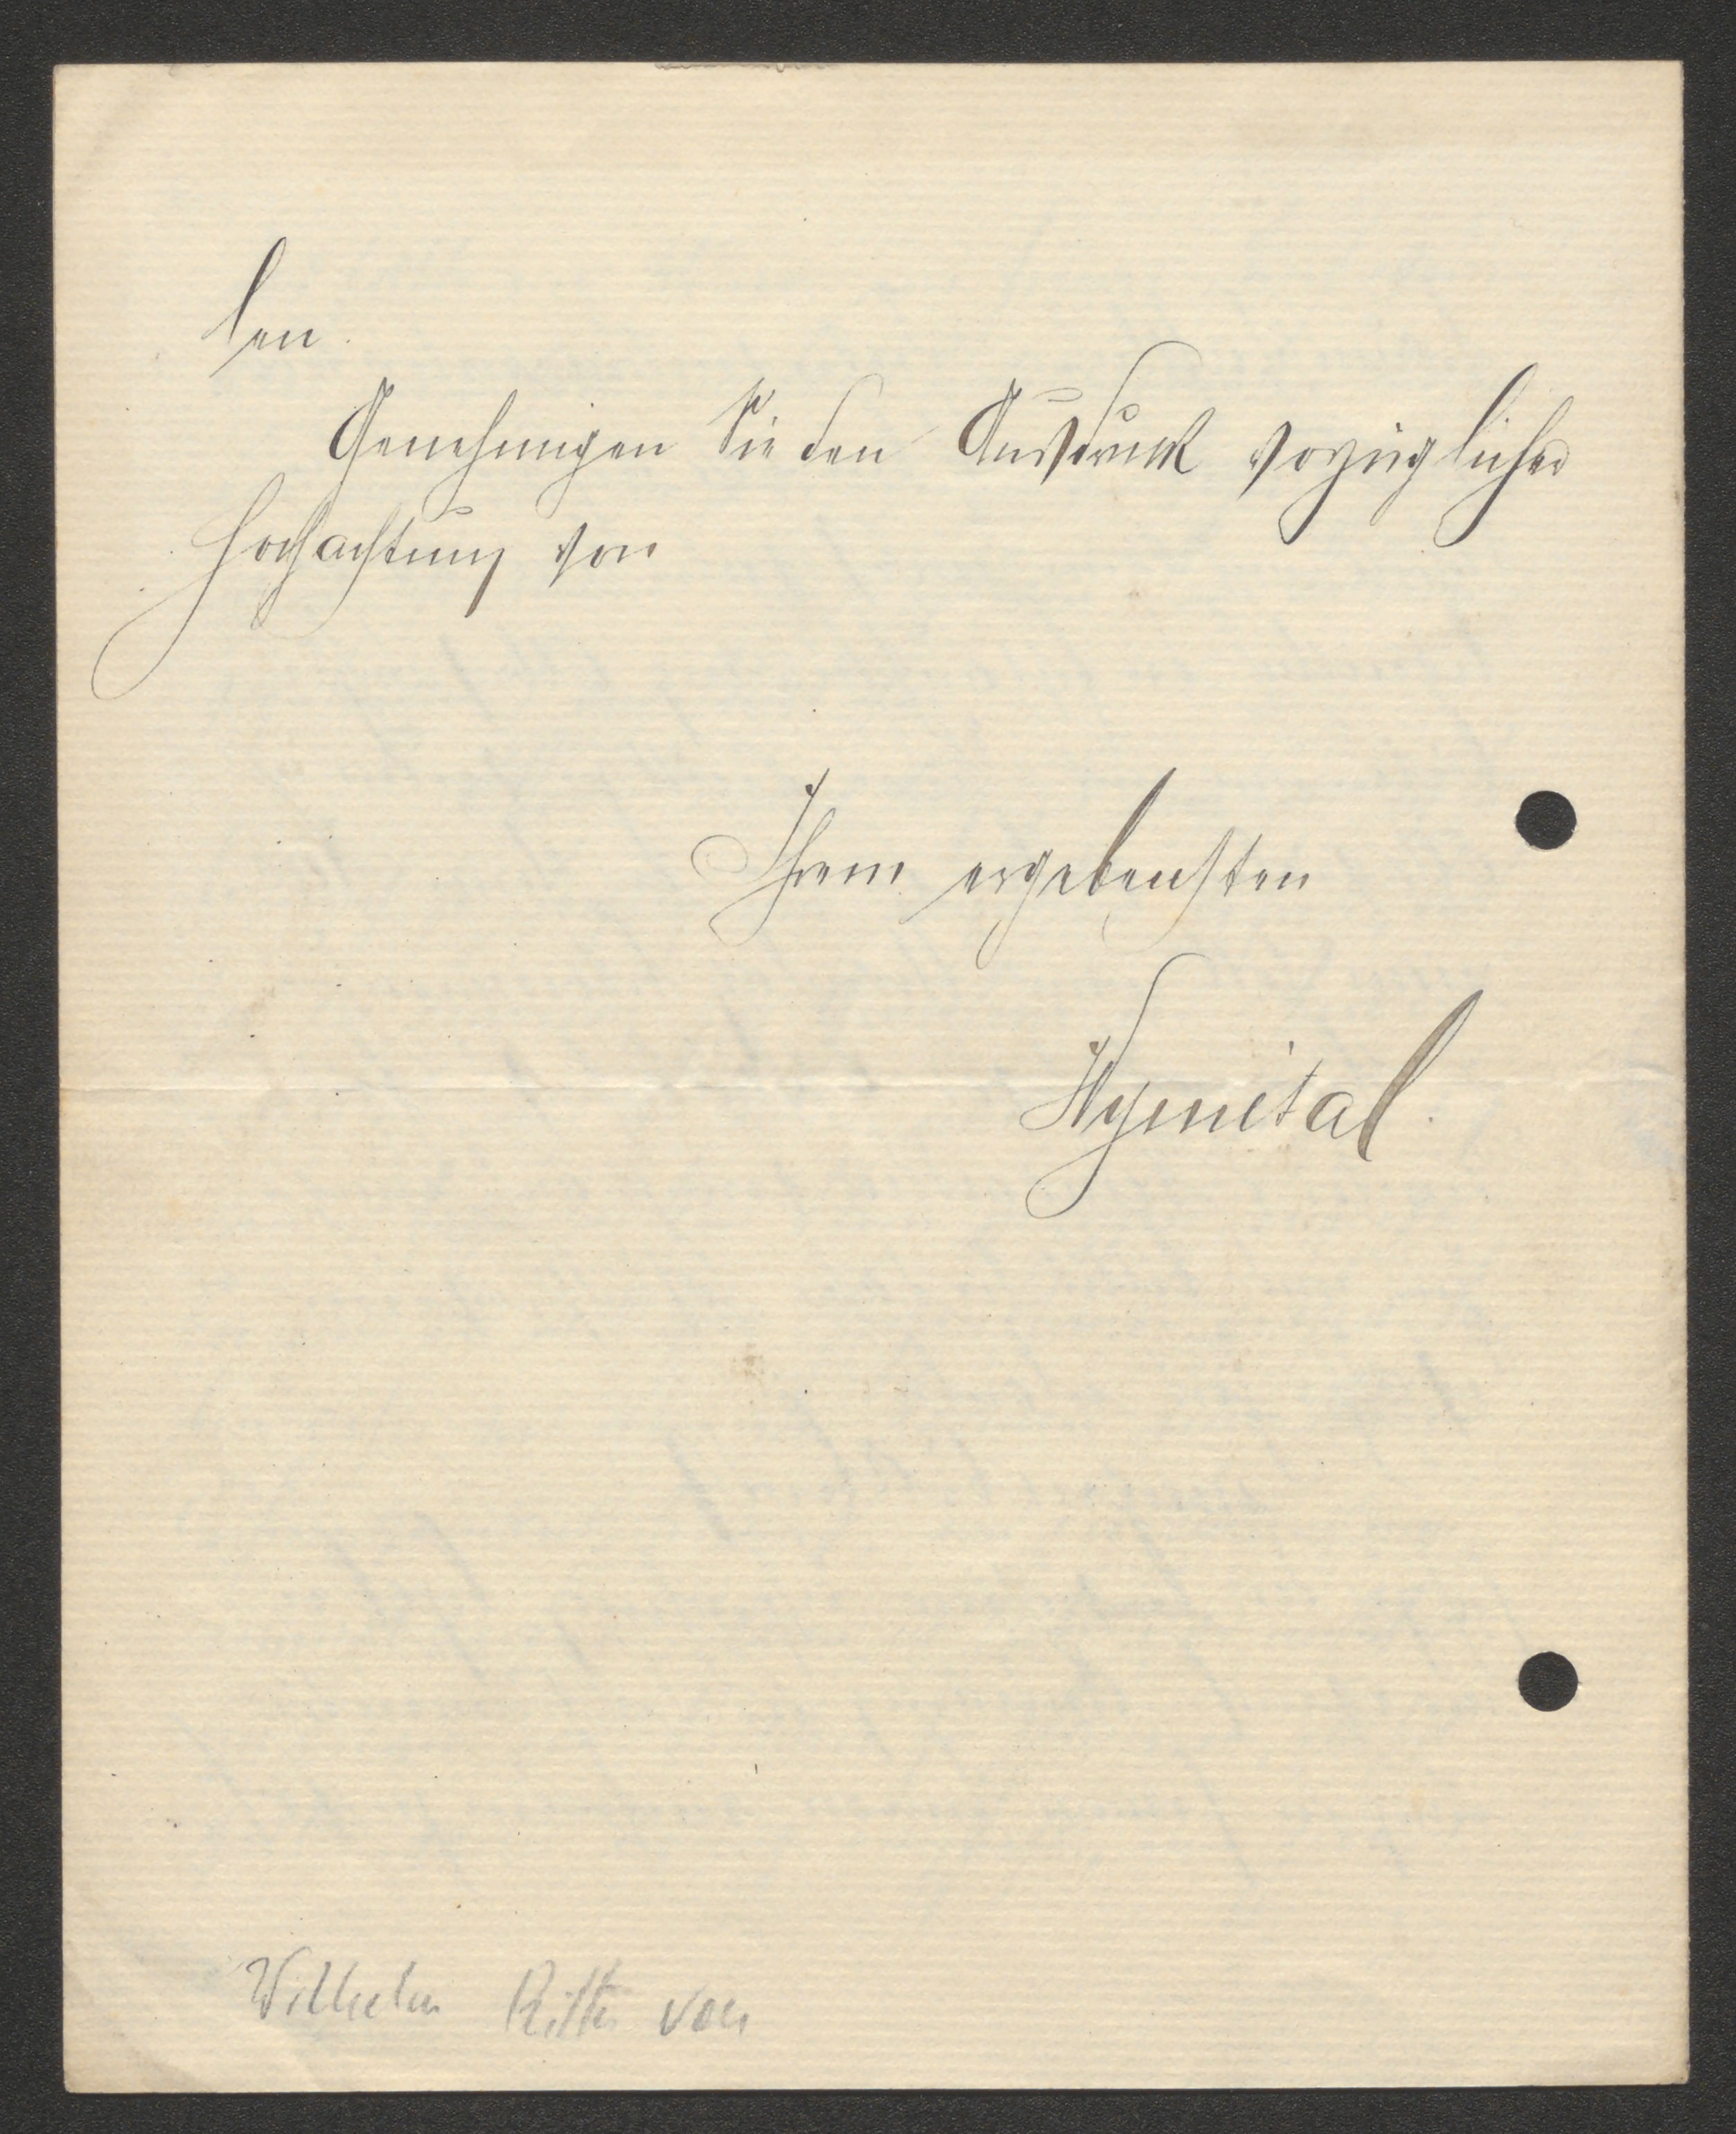 len.
Genehmigen Sie den Ausdruck vorzüglicher
Hochachtung von
Ihrem ergebensten
Wymetal.
Wilhelm Ritter von